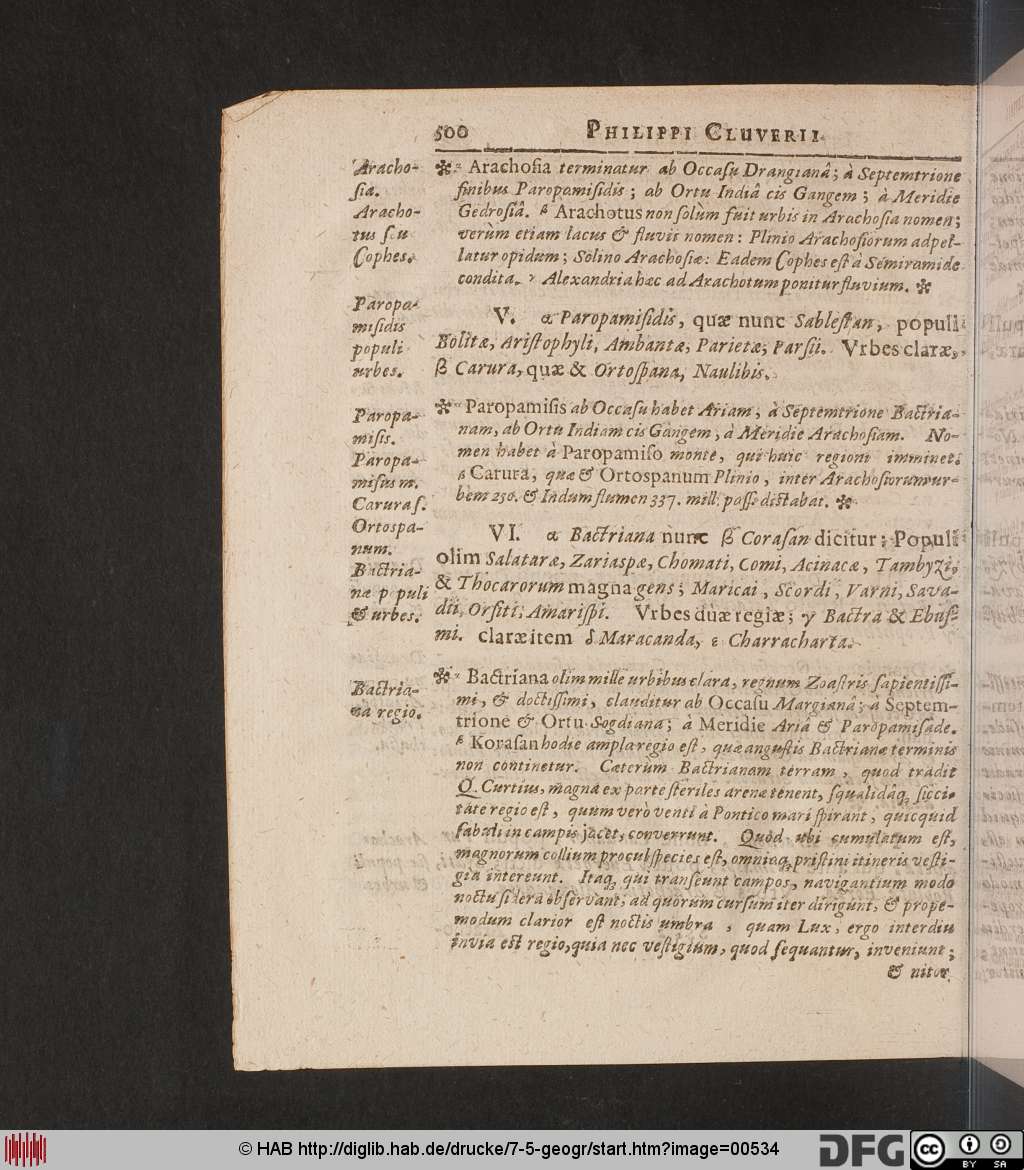 500 PHILIPPI CLUVERII
Aracho-
siæ.
Aracho-
tus s. u
Cophes.
✼ α Arachosia terminatur ab Occasu Drangianâ; à Septemtrione
finibus Paropamisidis; ab Ortu Indiâ cis Gangem; à Meridie
Gedrosiâ. β Arachotus non solùm fuit urbis in Arachosia nomen;
verùm etiam lacus & fluvii nomen: Plinio Arachosiorum adpel-
latur opidum; Solino Arachosiæ: Eadem Cophes est à Semiramide
condita. γ Alexandria hæc ad Arachotum ponitur fluvium. ✼
Paropa-
misidis
populi
urbes.
V. α Paropamisidis, quæ nunc Sablestan, populi
Bolitæ, Aristophyli, Ambantæ, Parietæ, Parsii. Vrbes claræ,
β Carura, quæ & Ortospana, Naulibis.
Paropa-
misis.
Paropa-
misus m.
Carura s.
Ortospa-
num.
✼ α Paropamisis ab Occasu habet Ariam; à Septemtrione Bactria-
nam, ab Ortu Indiam cis Gangem, à Meridie Arachosiam. No-
men habet à Paropamiso monte, qui huic regioni imminet.
β Carura, quæ & Ortospanum Plinio, inter Arachosiorum ur-
bem 250. & Indum flumen 337. mill. pass. distabat. ✼
Bactria-
næ p puli
& urbes.
VI. α Bactriana nunc β Corasan dicitur: Populi
olim Salataræ, Zariaspæ, Chomati, Comi, Acinacæ, Tambyzi,
& Thocarorum magna gens; Maricai, Scordi, Varni, Sava-
dii, Orsiti, Amarispi. Vrbes duæ regiæ; γ Bactra & Ebus-
mi. claræ item δ Maracanda, ε Charracharta.
Bactria-
na regio.
✼ α Bactriana olim mille urbibus clara, regnum Zoastris sapientissi-
mi, & doctissimi, clauditur ab Occasu Margianâ; à Septem-
trione & Ortu Sogdiana; à Meridie Ariâ & Paropamisade.
β Korasan hodie ampla regio est, quæ angustis Bactrianæ terminis
non continetur. Cæterùm Bactrianam terram, quod tradit
Q. Curtius, magnâ ex parte steriles arenæ tenent, squalidâq; sicci-
tate regio est, quum verò venti à Pontico mari spirant, quicquid
sabuli in campis jacet, converrunt. Quod ubi cumulatum est,
magnorum collium procul species est, omniaq; pristini itineris vesti-
gia intereunt. Itaq; qui transeunt campos, navigantium modo
noctu sidera observant, ad quorum cursum iter dirigunt, & prope-
modum clarior est noctis umbra, quam Lux, ergo interdiu
invia est regio, quia nec vestigium, quod sequantur, inveniunt;
& nitor
© HAB http://diglib.hab.de/drucke/7-5-geogr/start.htm?image=00534
DFG
cc
BY SA